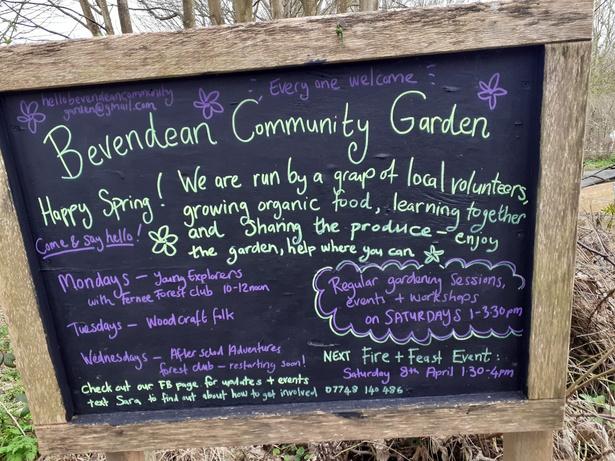 Every one welcome
hellobevendeancommunity
garden@gmail.com
Bevendean Community Garden
Happy Spring!
Come & say hello!
We are run by a group of local volunteers,
growing organic food, learning together
and sharing the produce - enjoy
the garden, help where you can
Mondays - Young Explorers
with Fernee Forest club 10-12noon
Tuesdays - Woodcraft folk
Wednesdays - After school Adventures
forest club - restarting soon!
Regular gardening sessions,
events + workshops
on SATURDAYS 1-3:30pm
NEXT Fire + Feast Event:
Saturday 8th April 1:30-4pm
Check out our FB page for updates + events
text Sara to find out about how to get involved 07748 140 486